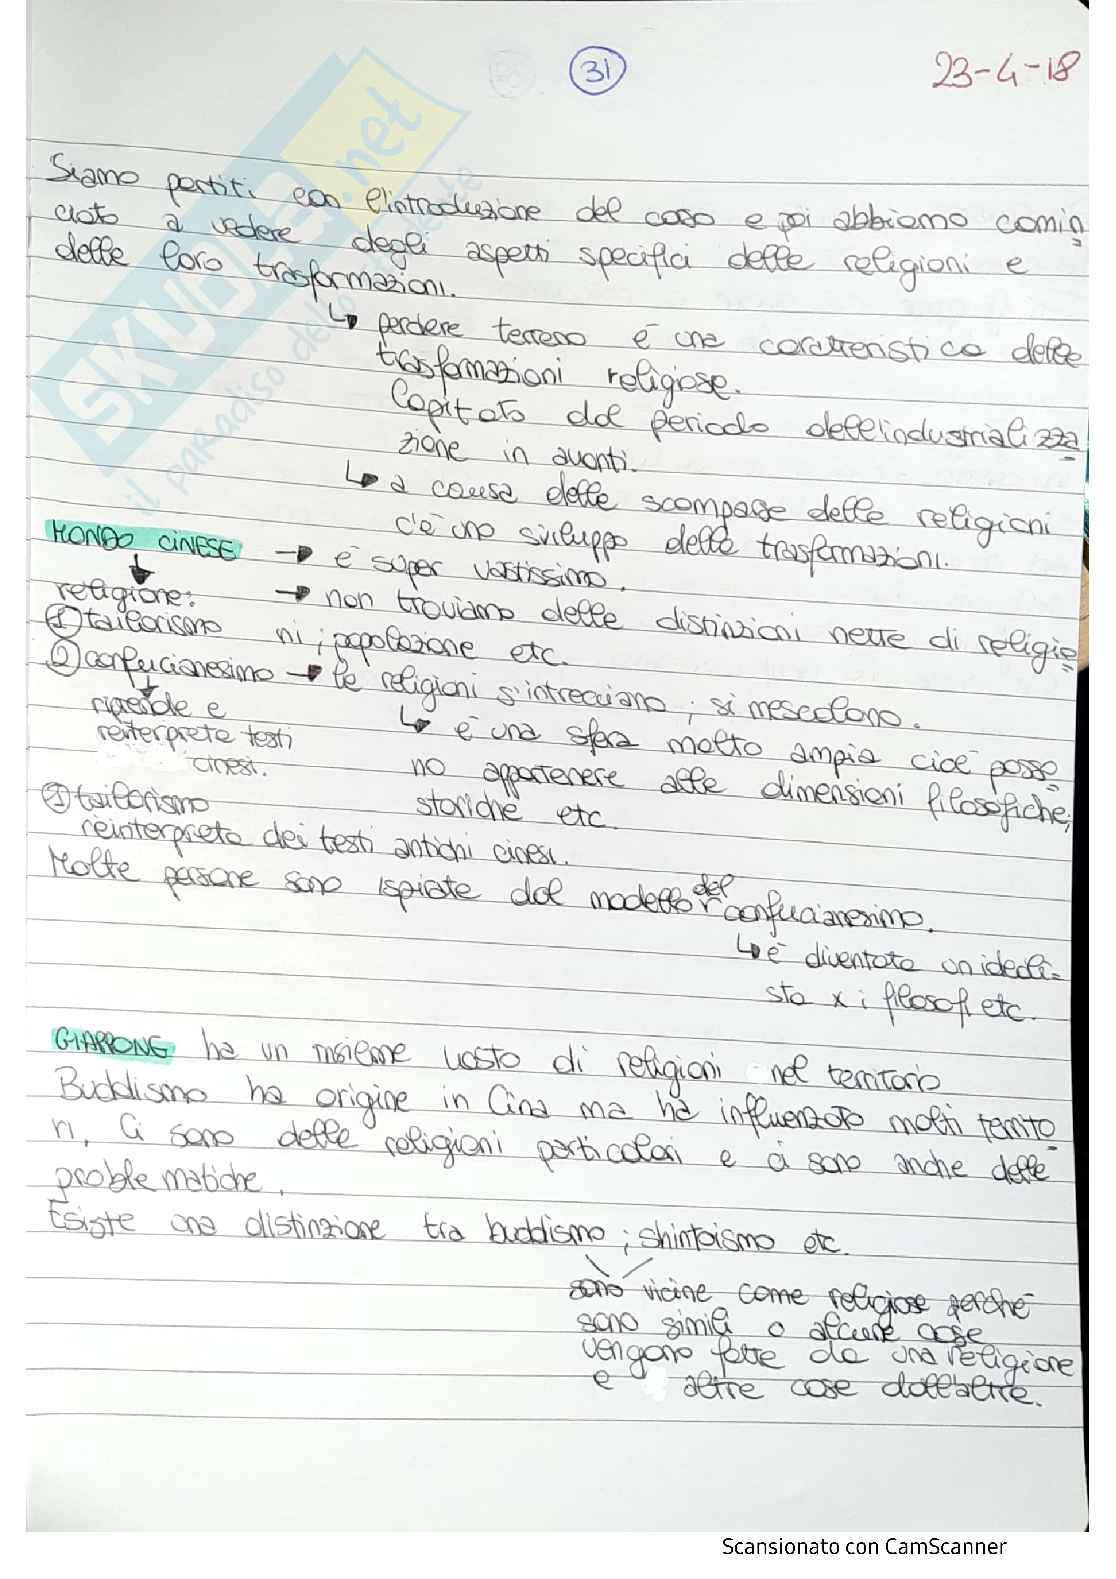 31
23-4-18
Siamo partiti con l'introduzione del corso e poi abbiamo comin
ciato a vedere degli aspetti specifici delle religioni e
delle loro trasformazioni.
↳ perdere terreno è una caratteristica delle
trasformazioni religiose.
Capitato dal periodo dell'industrializza
zione in avanti.
↳ a causa delle scomparse delle religioni
c'è uno sviluppo delle trasformazioni.
MONDO CINESE → è super vastissimo.
religione: → non troviamo delle distinzioni nette di religio
① tailorismo ni; popolazione etc.
② confucianesimo → le religioni s'intrecciano; si mescolano.
riprende e ↳ è una sfera molto ampia cioè posso
reinterpreta testi no appartenere alle dimensioni filosofiche;
cinesi. storiche etc.
① tailorismo
reinterpreta dei testi antichi cinesi.
Molte persone sono ispirate dal modello del confucianesimo.
↳ è diventata un ideali-
sta x i filosofi etc.
GIAPPONE ha un insieme vasto di religioni nel territorio
Buddismo ha origine in Cina ma ha influenzato molti territo
ri. Ci sono delle religioni particolari e ci sono anche delle
problematiche.
Esiste una distinzione tra buddismo; shintoismo etc.
sono vicine come religiose perché
sono simili o alcune cose
vengono fatte da una religione
e altre cose dall'altre.
SKUOLA.net
il paradiso dello studente
Scansionato con CamScanner